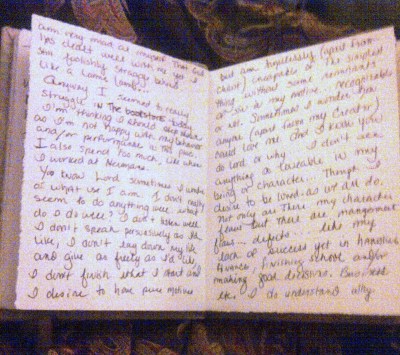 am very proud as
not dealt well with me yet I
still foolishly struggle behind
like a
Anyway I seemed to really
struggle in the bookstore today
I'm thinking I should step down
as I'm not happy with my behavior
and/or performance in this place
I also spend too much, like when
I worked at
You know Lord sometimes I wonder
of what use I am. I don't really
seem to do anything well. What
do I do well? I don't listen well
I don't speak persuasively as I'd
like, I don't lay down my life
and give as freely as I'd like
I don't finish what I start and
I desire to have pure motives
but am hopelessly (apart from
Christ) incapable of the simplest
thing without some remnants
of sin in my motive, recognizable
or not. Sometimes I wonder how
anyone (apart from my Creator)
could love me. And I know you
do Lord or why I don't see
anything so loveable in my
being or character. Though I
desire to be loved as we all do.
Not only are there my character
flaws but there are management
flaws... defects... like my
lack of success yet in handling
finances, finishing school and/or
making good decisions.
etc. I do understand why